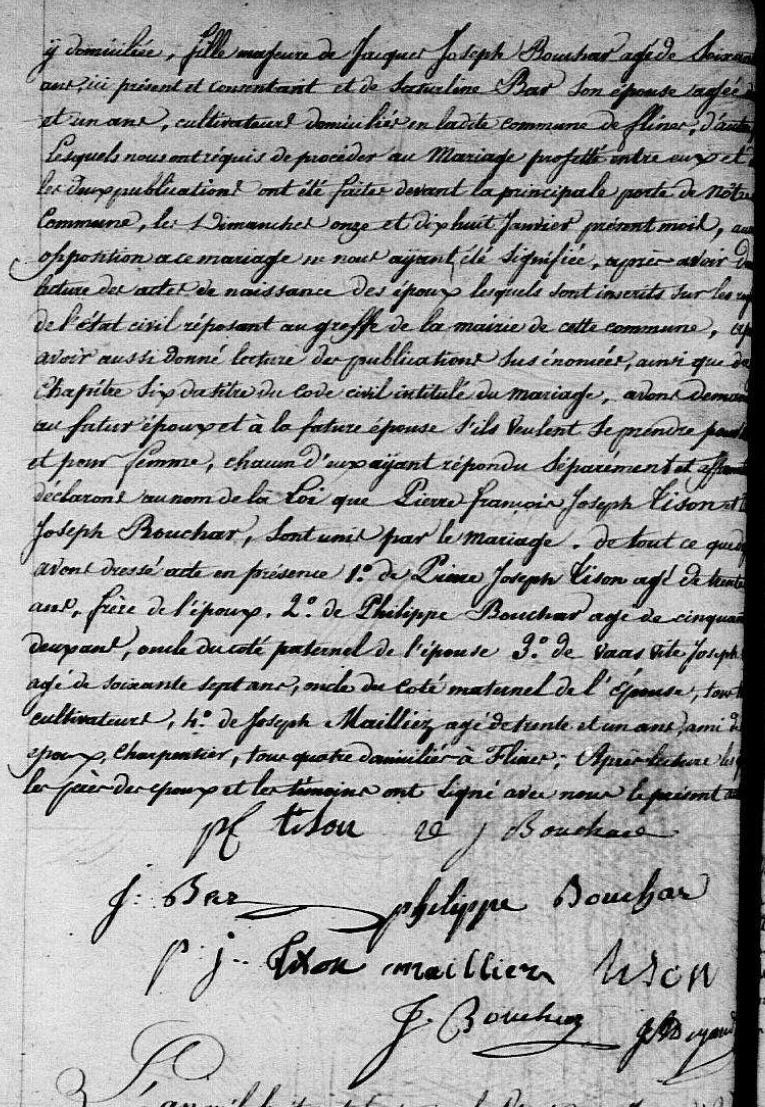 y domiciliée, fille majeure de Jacques Joseph Bouchar agé de Soixante
ans, ici présent et consentant et de Saturline Bar Son épouse agée
et un ans, cultivateurs domiciliés en ladite commune de flines, d'autre
Lesquels nous ont réquis de procéder au Mariage projetté entre eux et
les deux publications ont été faites devant la principale porte de nôtre
Commune, les Dimanches onze et dix huit Janvier présent mois, au
opposition a ce mariage ne nous ayant été Signifiée, après avoir
lecture des actes de naissance des époux lesquels sont inscrits sur les
de l'état civil réposant au greffe de la mairie de cette commune,
avoir aussi donné lecture des publications Sus énoncées, ainsi que du
Chapitre Six du titre du Code civil intitulé du mariage, avons
au futur époux et à la future épouse S'ils veulent Se prendre pour
et pour femme, chacun d'eux ayant répondu Séparément et
déclarons au nom de la Loi que Pierre françois Joseph Tison et
Joseph Bouchar, Sont unis par le mariage. de tout ce que
avons dressé acte en présence 1.º de Pierre Joseph Tison agé de trente
ans, frère de l'époux. 2.º de Philippe Bouchar agé de cinquante
deux ans, oncle du coté paternel de l'épouse 3.º de Vaas Vite Joseph
agé de soixante sept ans, oncle du Coté maternel de l'épouse, tous
cultivateurs, 4.º de Joseph Mailliez agé de trente et un ans, ami des
époux, Charpentier, tous quatre domiciliés à Flines; Après lecture
les pères des époux et les témoins ont Signé avec nous le présent
pf tison J Bouchar
J. Bar philippe Bouchar
p. j. tison mailliez tison
J. Bouchez